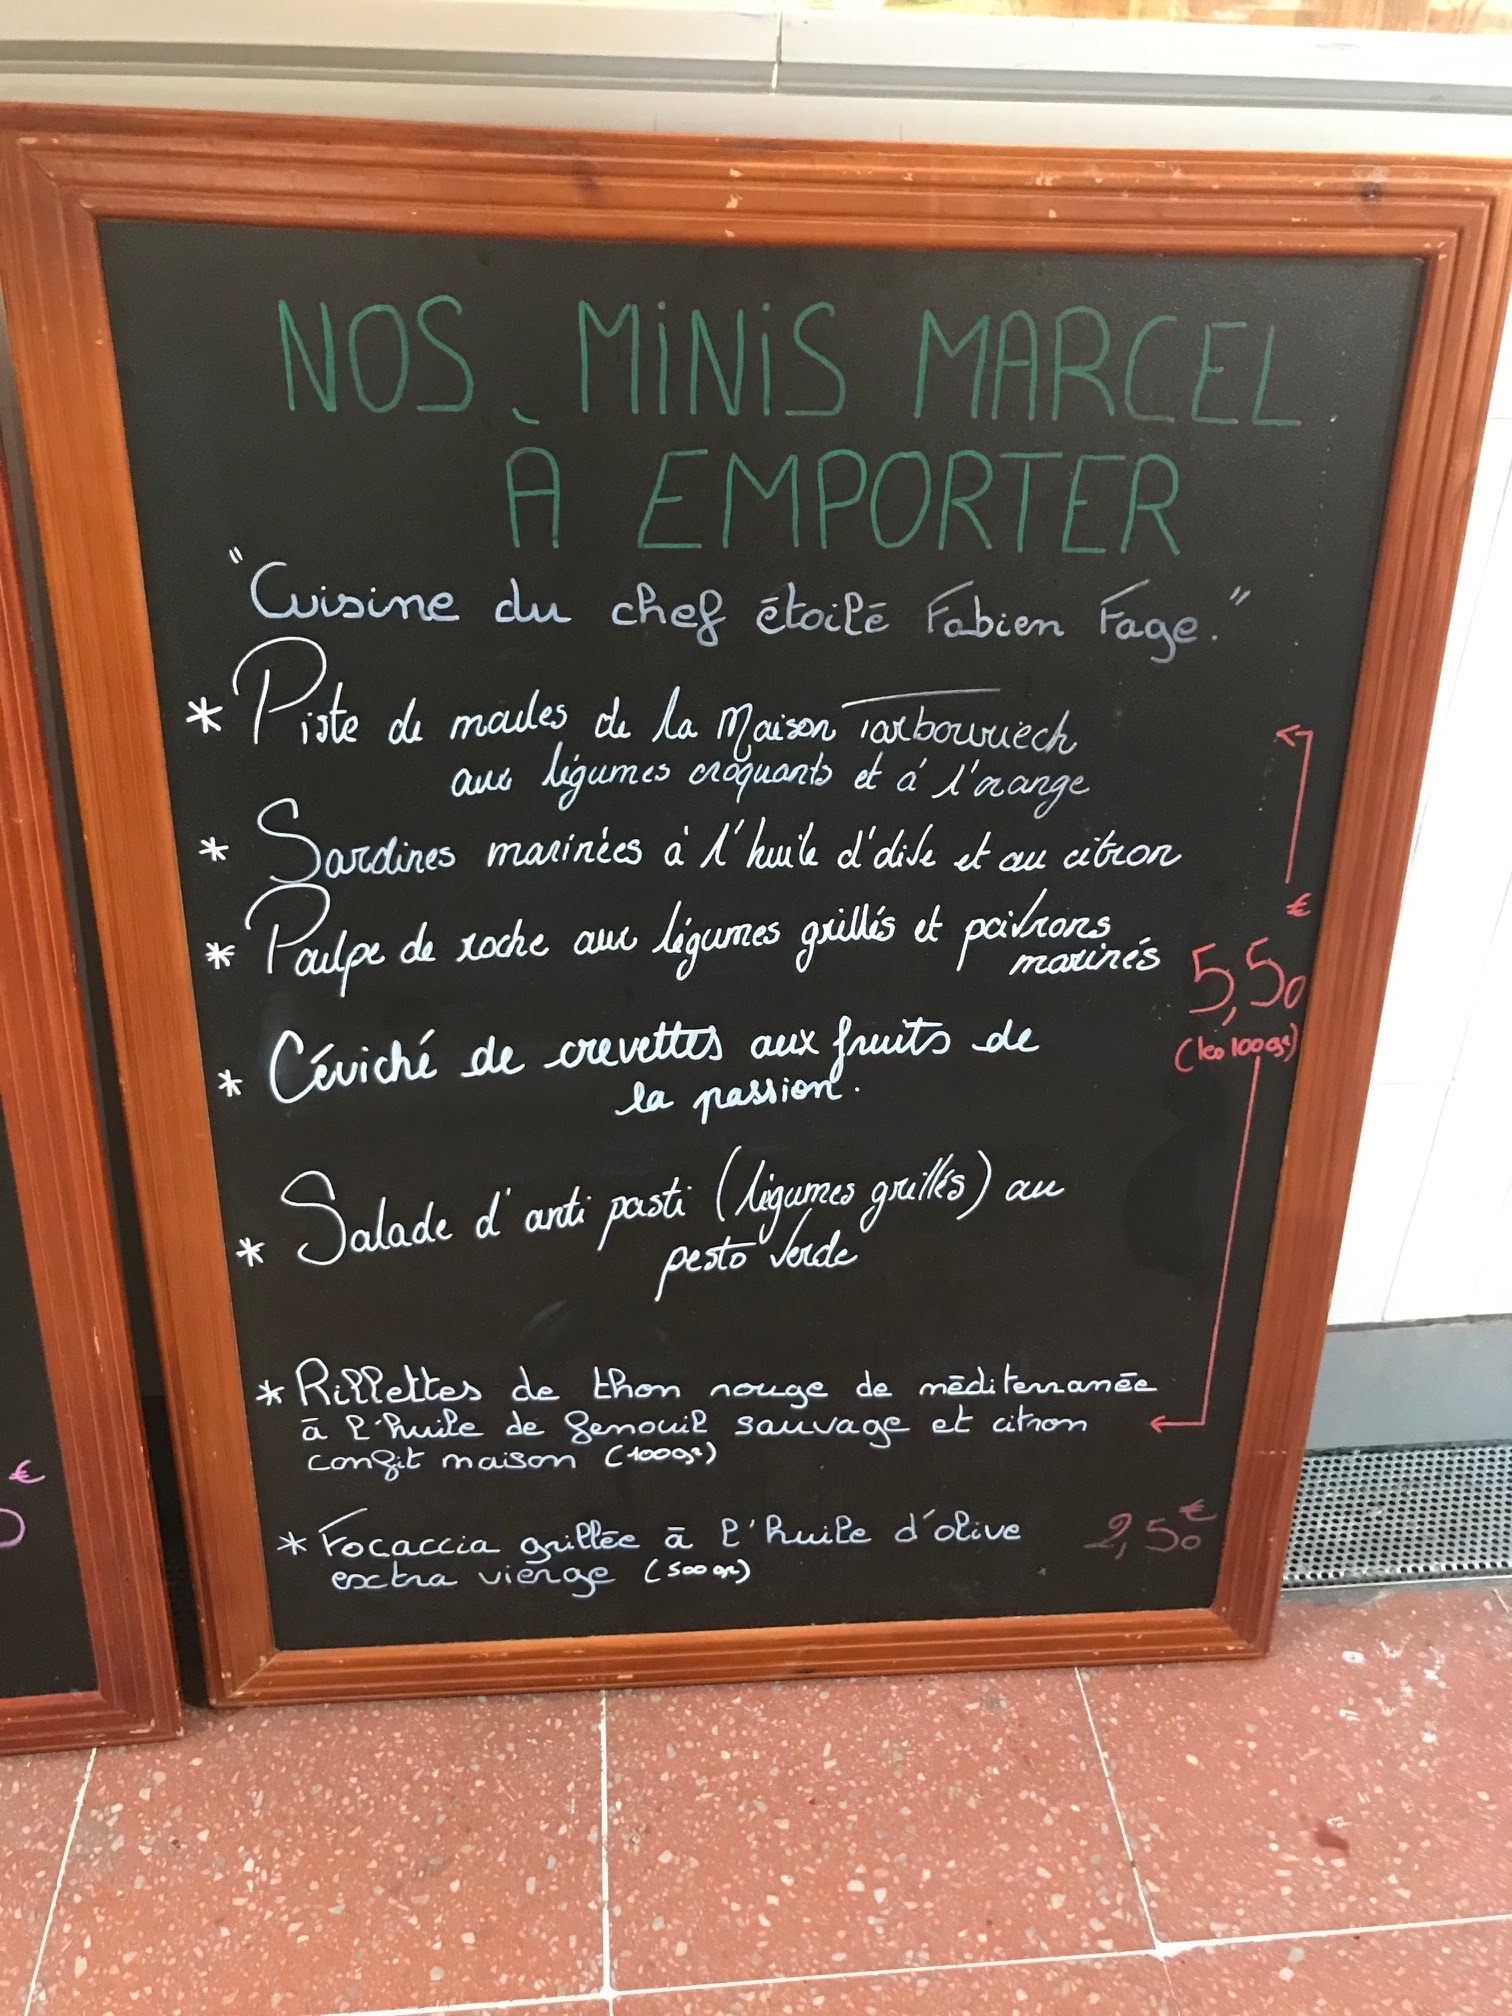 NOS MINIS MARCEL
À EMPORTER
"Cuisine du chef étoilé Fabien Fage."
* Piste de moules de la Maison Tarbouriech
aux légumes croquants et à l'orange
* Sardines marinées à l'huile d'olive et au citron
* Poulpe de roche aux légumes grillés et poivrons
marinés
* Céviché de crevettes aux fruits de
la passion.
* Salade d'anti pasti (légumes grillés) au
pesto verde
€
5,50
(les 100gr)
* Rillettes de thon rouge de méditerranée
à l'huile de fenouil sauvage et citron
confit maison (100gr)
* Focaccia grillée à l'huile d'olive
extra vierge (500gr)
2,50€
€